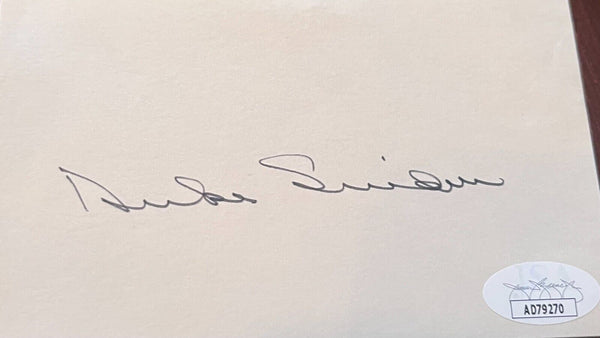 Duke Snider
JSA
AD79270